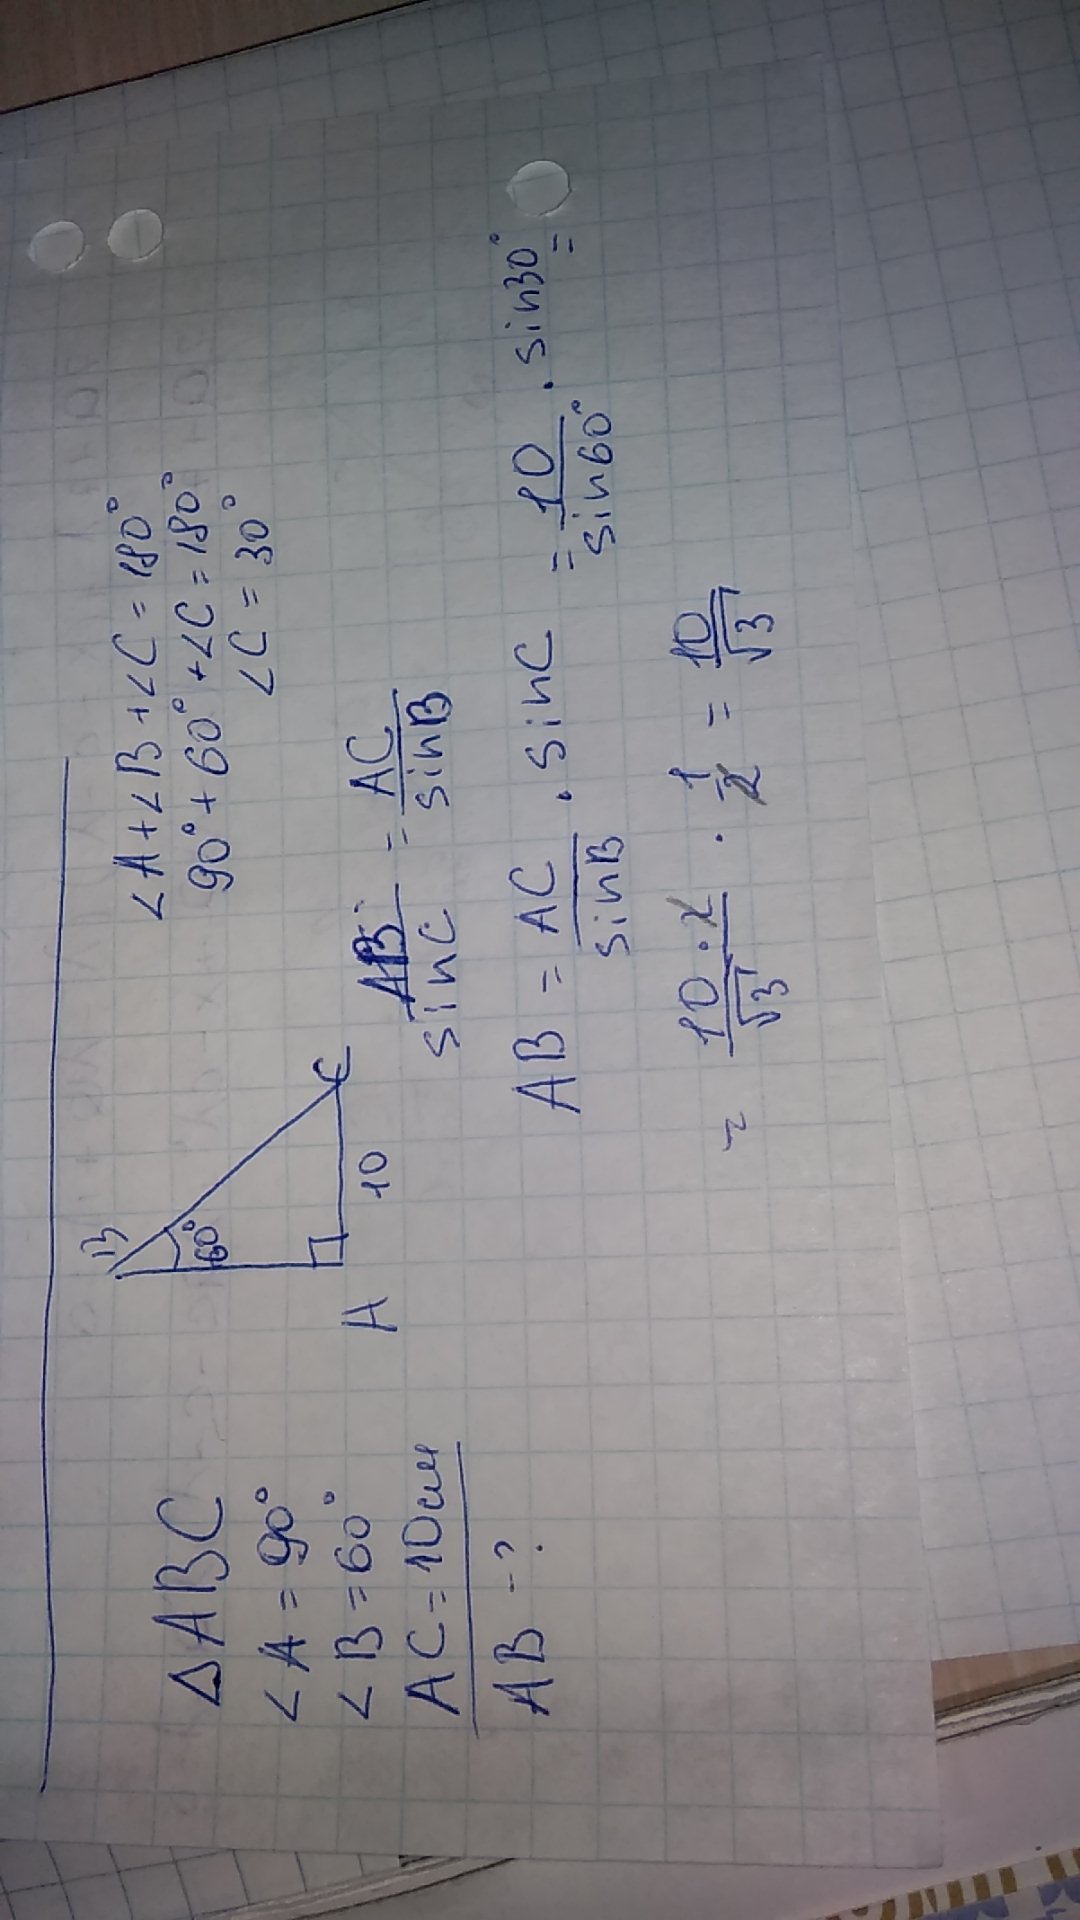 △ABC
∠A = 90°
∠B = 60°
AC = 10см
AB - ?
B
60°
A
10
C
∠A + ∠B + ∠C = 180°
90° + 60° + ∠C = 180°
∠C = 30°
AB/sinC = AC/sinB
AB = AC/sinB · sinC = 10/sin60° · sin30° =
= 10·2/√3 · 1/2 = 10/√3